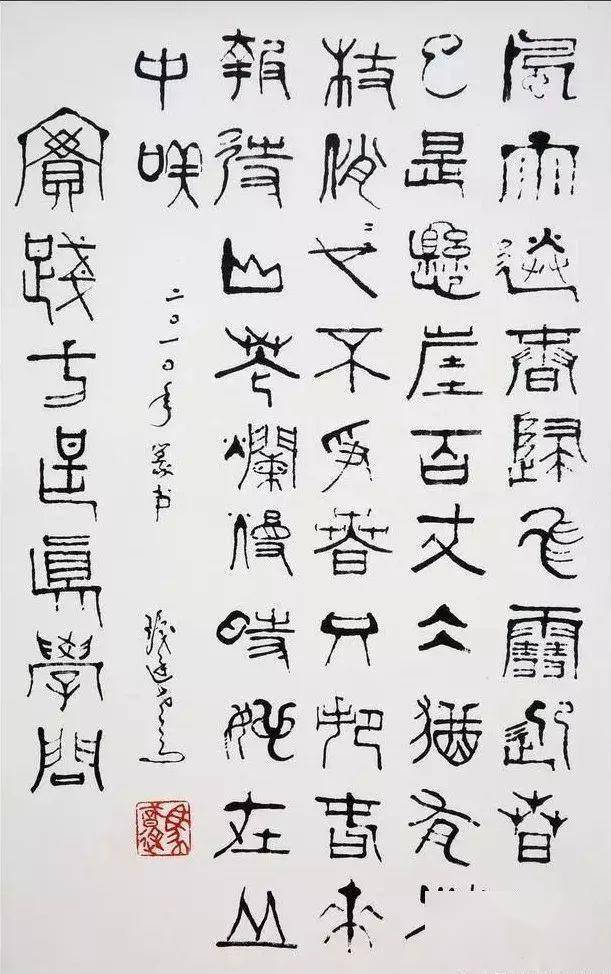 風雨送春歸飛雪迎春
已是懸崖百丈冰猶有
枝俏〻也不爭春只把春來
報待山花爛漫時她在丛
中咲
二〇一〇年篆书
實踐才是眞學問